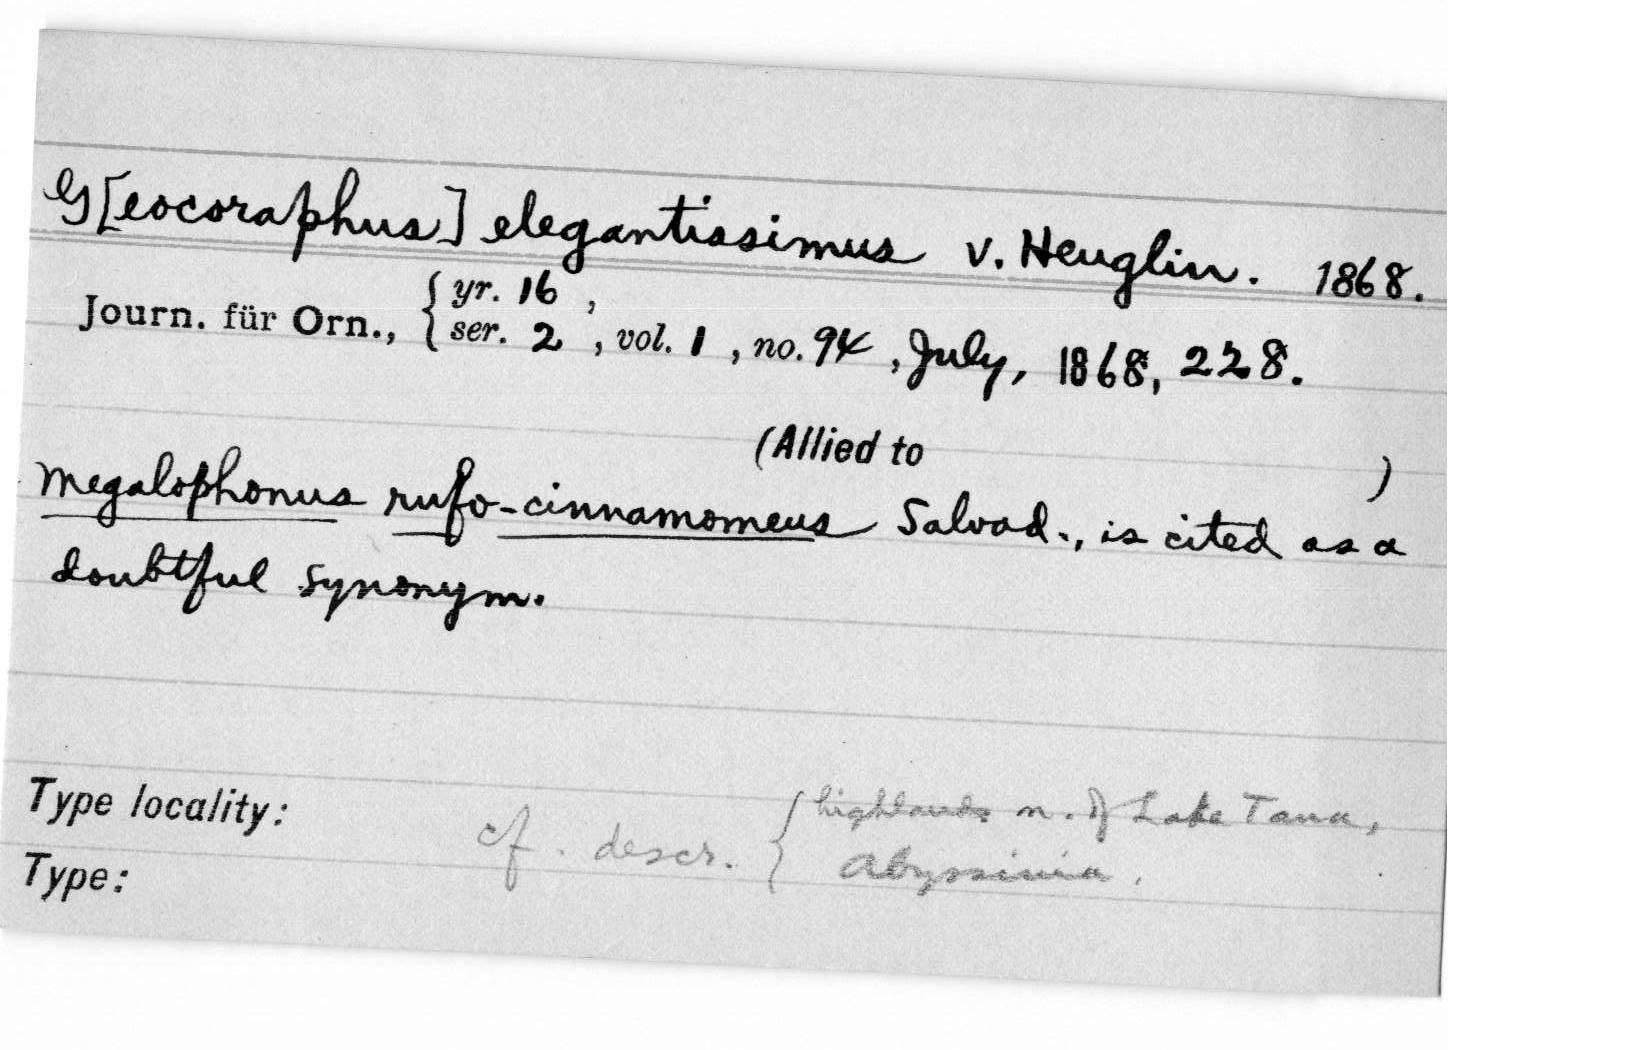 G[eocoraphus] elegantissimus v. Heuglin. 1868.
Journ. für Orn., { yr. 16 ,
ser. 2 , vol. 1 , no. 94 , July, 1868, 228.
(Allied to )
Megalophonus rufo-cinnamomeus Salvad., is cited as a
doubtful synonym.
Type locality: cf. descr. { highlands n. of Lake Tana,
Abyssinia.
Type: